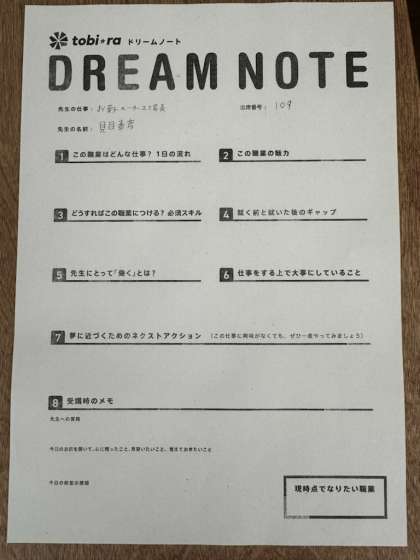 tobi・ra ドリームノート
DREAM NOTE
先生の仕事：お菓子
出席番号：109
先生の名前：
1 この職業はどんな仕事？ 1日の流れ
2 この職業の魅力
3 どうすればこの職業につける？ 必須スキル
4 就く前と就いた後のギャップ
5 先生にとって「働く」とは？
6 仕事をする上で大事にしていること
7 夢に近づくためのネクストアクション （この仕事に興味がなくても、ぜひ一度やってみましょう）
8 受講時のメモ
先生への質問
今日のお話を聞いて、心に残ったこと、見習いたいこと、覚えておきたいこと
今日の授業の感想
現時点でなりたい職業